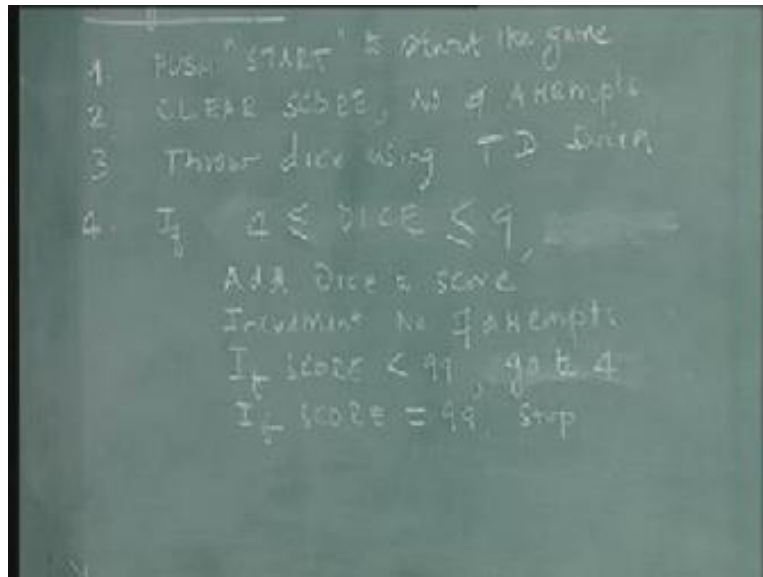 1 PUSH "START" to start the game
2 CLEAR SCORE, No of Attempts
3 Throw dice using TD
4. If 1 ≤ DICE ≤ 9,
Add Dice to score
Increment No of attempts
If SCORE < 99, go to 4
If SCORE = 99, Stop